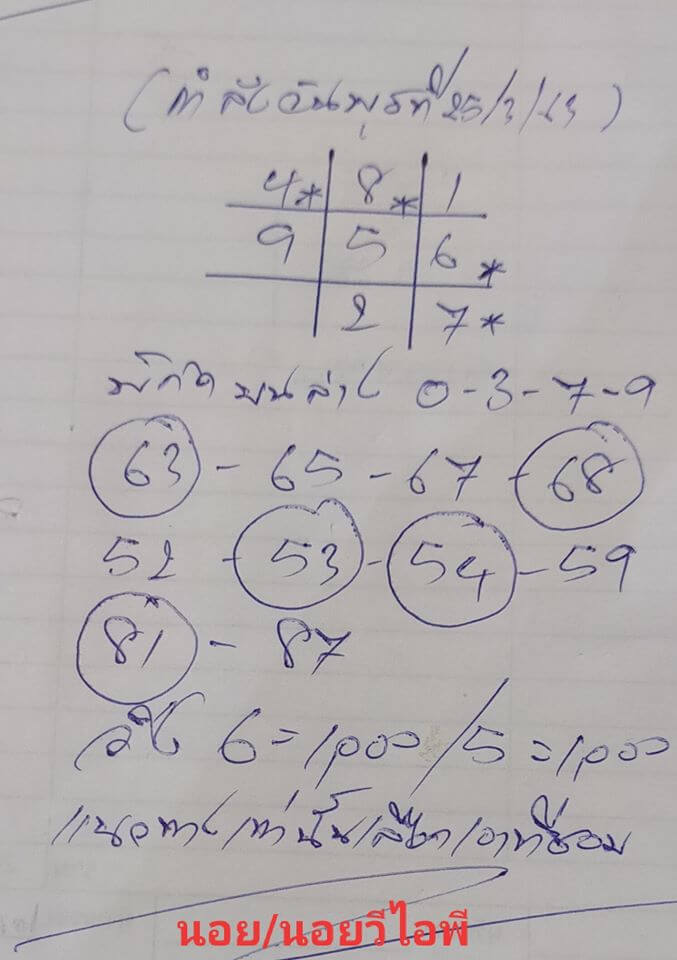 วันพุธที่ 25/3/63 )
4* | 8* | 1
9 | 5 | 6*
2 | 7*
บนล่าง 0-3-7-9
63 - 65 - 67 - 68
52 - 53 - 54 - 59
81 - 87
6 = 1,000 / 5 = 1,000
แนวทางเท่านั้นเลือกเอาที่ชอบ
นอย/นอยวีไอพี